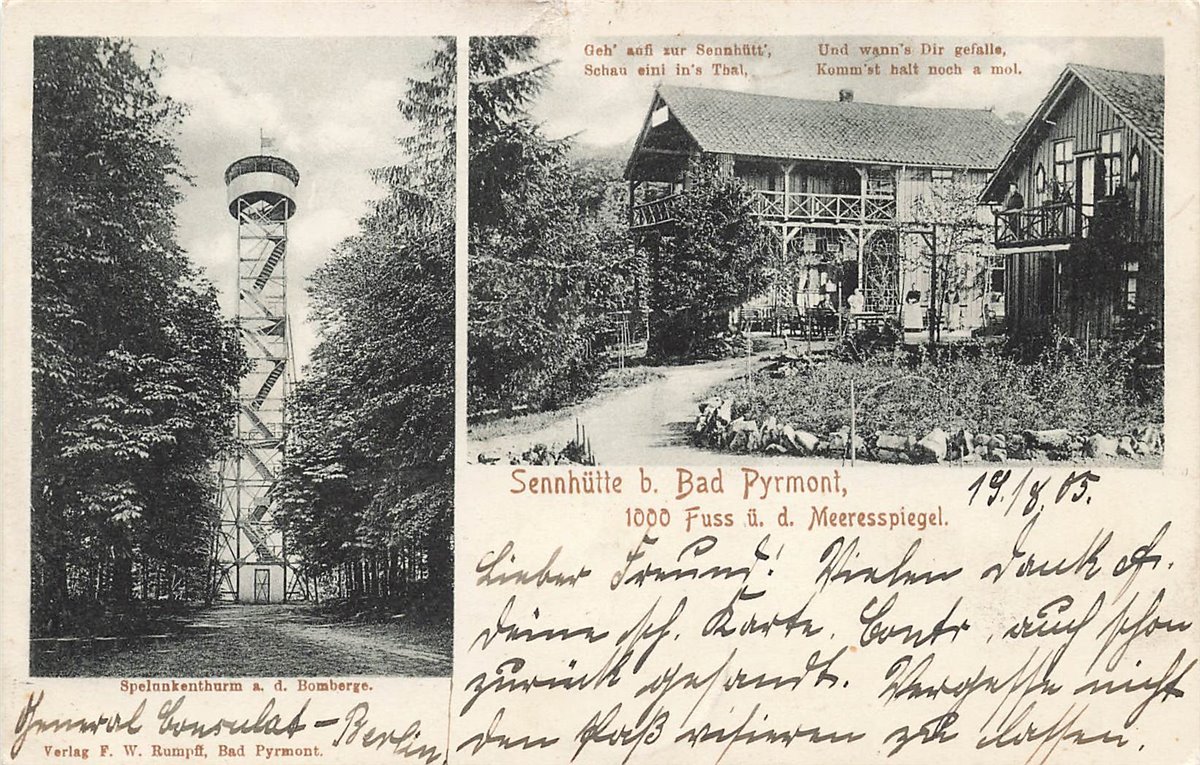 Geh' aufi zur Sennhütt',
Schau eini in's Thal,
Und wann's Dir gefalle,
Komm'st halt noch a mol.
Sennhütte b. Bad Pyrmont,
1000 Fuss ü. d. Meeresspiegel.
19./8.05.
Lieber Freund! Vielen Dank f.
deine sch. Karte. Contr. auch schon
zurück gesandt. Vergesse nicht
den Paß visieren zu lassen.
Spelunkenthurm a. d. Bomberge.
General Consulat - Berlin
Verlag F. W. Rumpff, Bad Pyrmont.